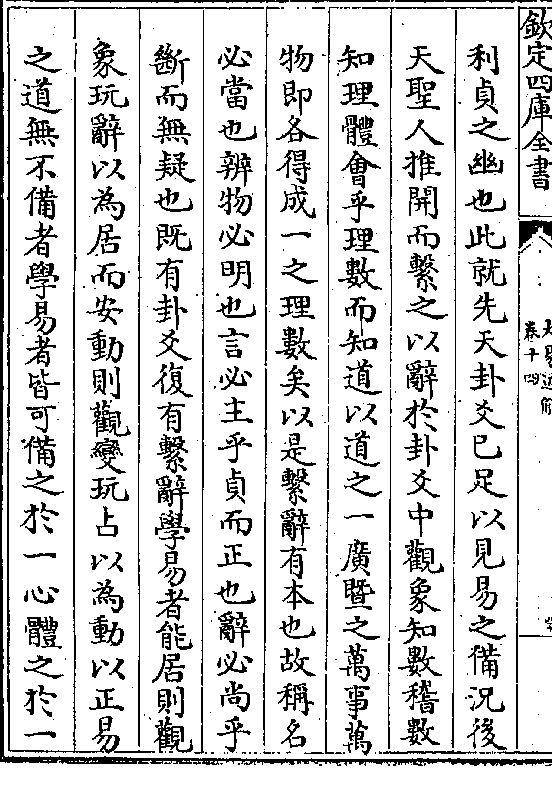 欽定四庫全書
卷十四
利貞之幽也此就先天卦爻已足以見易之備況後
天聖人推開而繫之以辭於卦爻中觀象知數稽數
知理體會乎理數而知道以道之一廣暨之萬事萬
物即各得成一之理數矣以是繫辭有本也故稱名
必當也辨物必明也言必主乎貞而正也辭必尚乎
斷而無疑也既有卦爻復有繫辭學易者能居則觀
象玩辭以為居而安動則觀變玩占以為動以正易
之道無不備者學易者皆可備之於一心體之於一